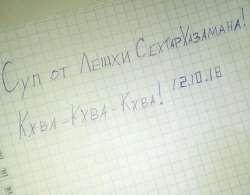 Суп от Лешки СехтарХазамана!
Кхва-Кхва-Кхва! 12.10.18